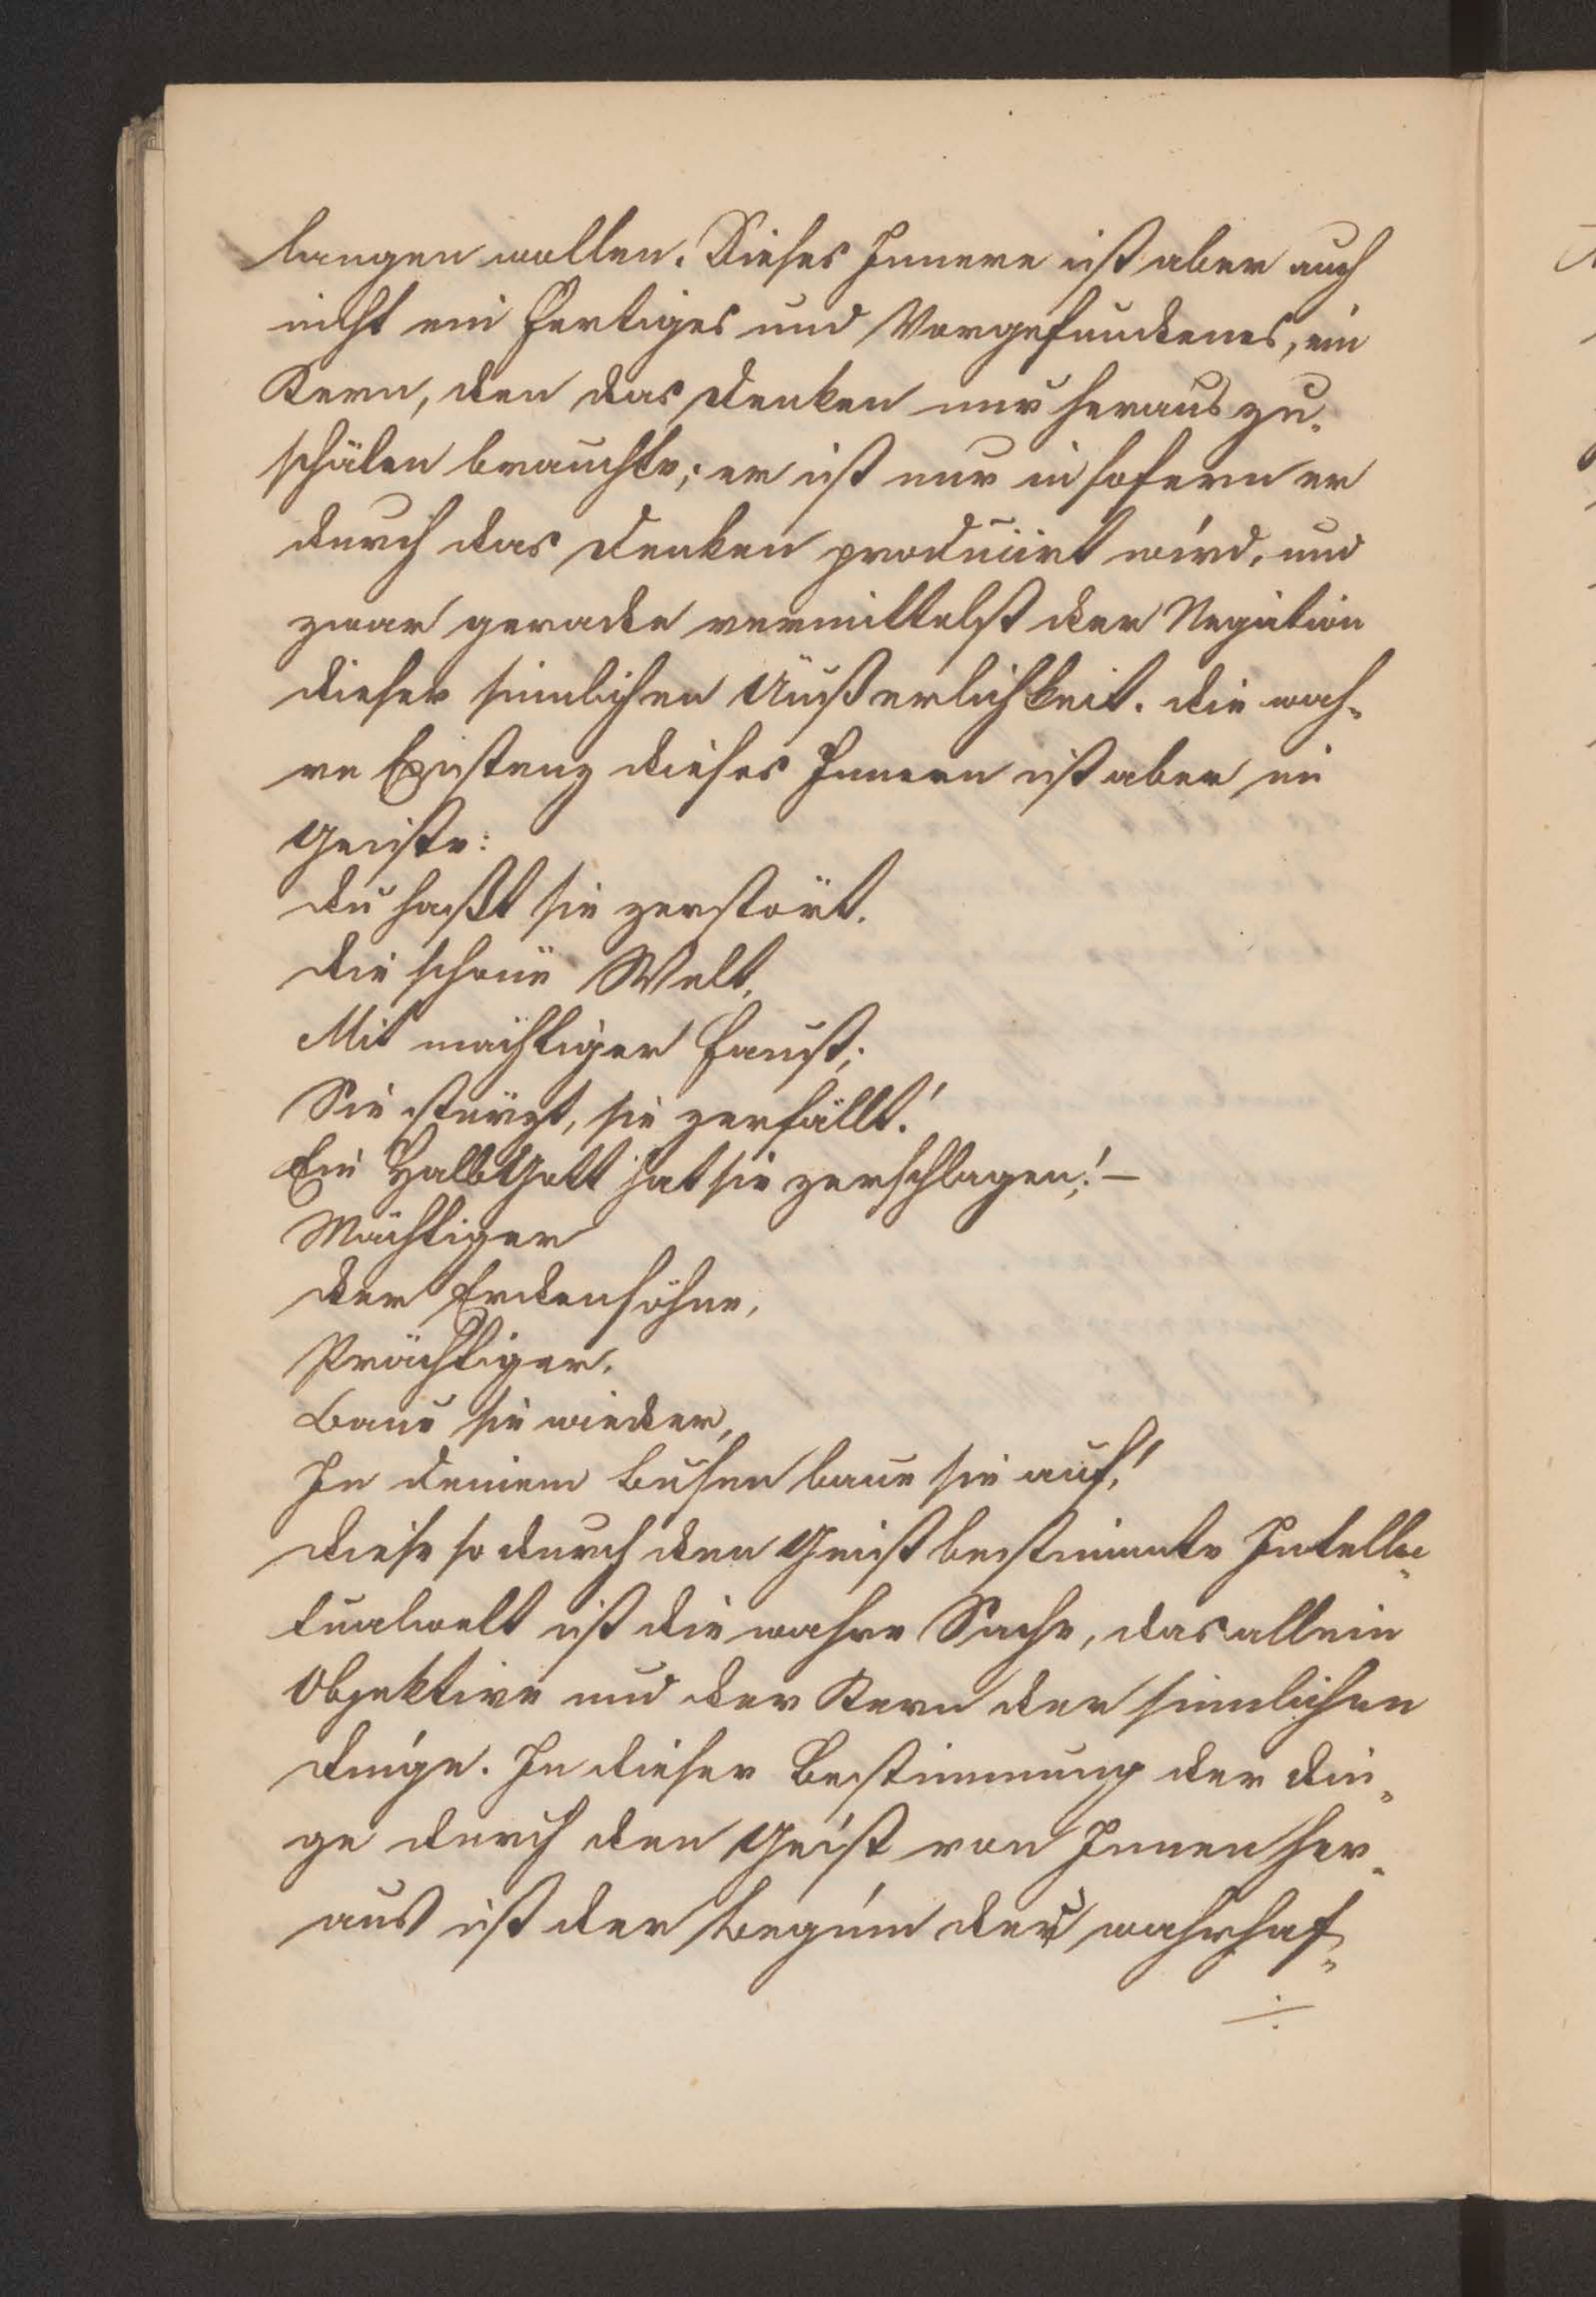 langen wollen. Dieses Innere ist aber auch
nicht ein Fertiges und Vorgefundenes, ein
Kern, den das Denken nur herauszu-
schälen brauchte; er ist nur insofern er
durch das Denken producirt wird, und
zwar gerade vermittelst der Negation
dieser sinnlichen Äußerlichkeit. Die wah-
re Existenz dieses Innern ist aber im
Geiste:
Du haßt sie zerstört.
Die schöne Welt,
Mit mächtiger Faust;
Sie stürzt, sie zerfällt!
Ein HalbGott hat sie zerschlagen! –
Mächtiger
der Erdensöhne,
Prächtiger,
Baue sie wieder,
In deinem Busen baue sie auf!
Diese so durch den Geist bestimmte Intellec-
tualwelt ist die wahre Sache, das allein
Objektive und der Kern der sinnlichen
Dinge. In dieser Bestimmung der Din-
ge durch den Geist von Innen her-
aus ist der Beginn der wahrhaf-